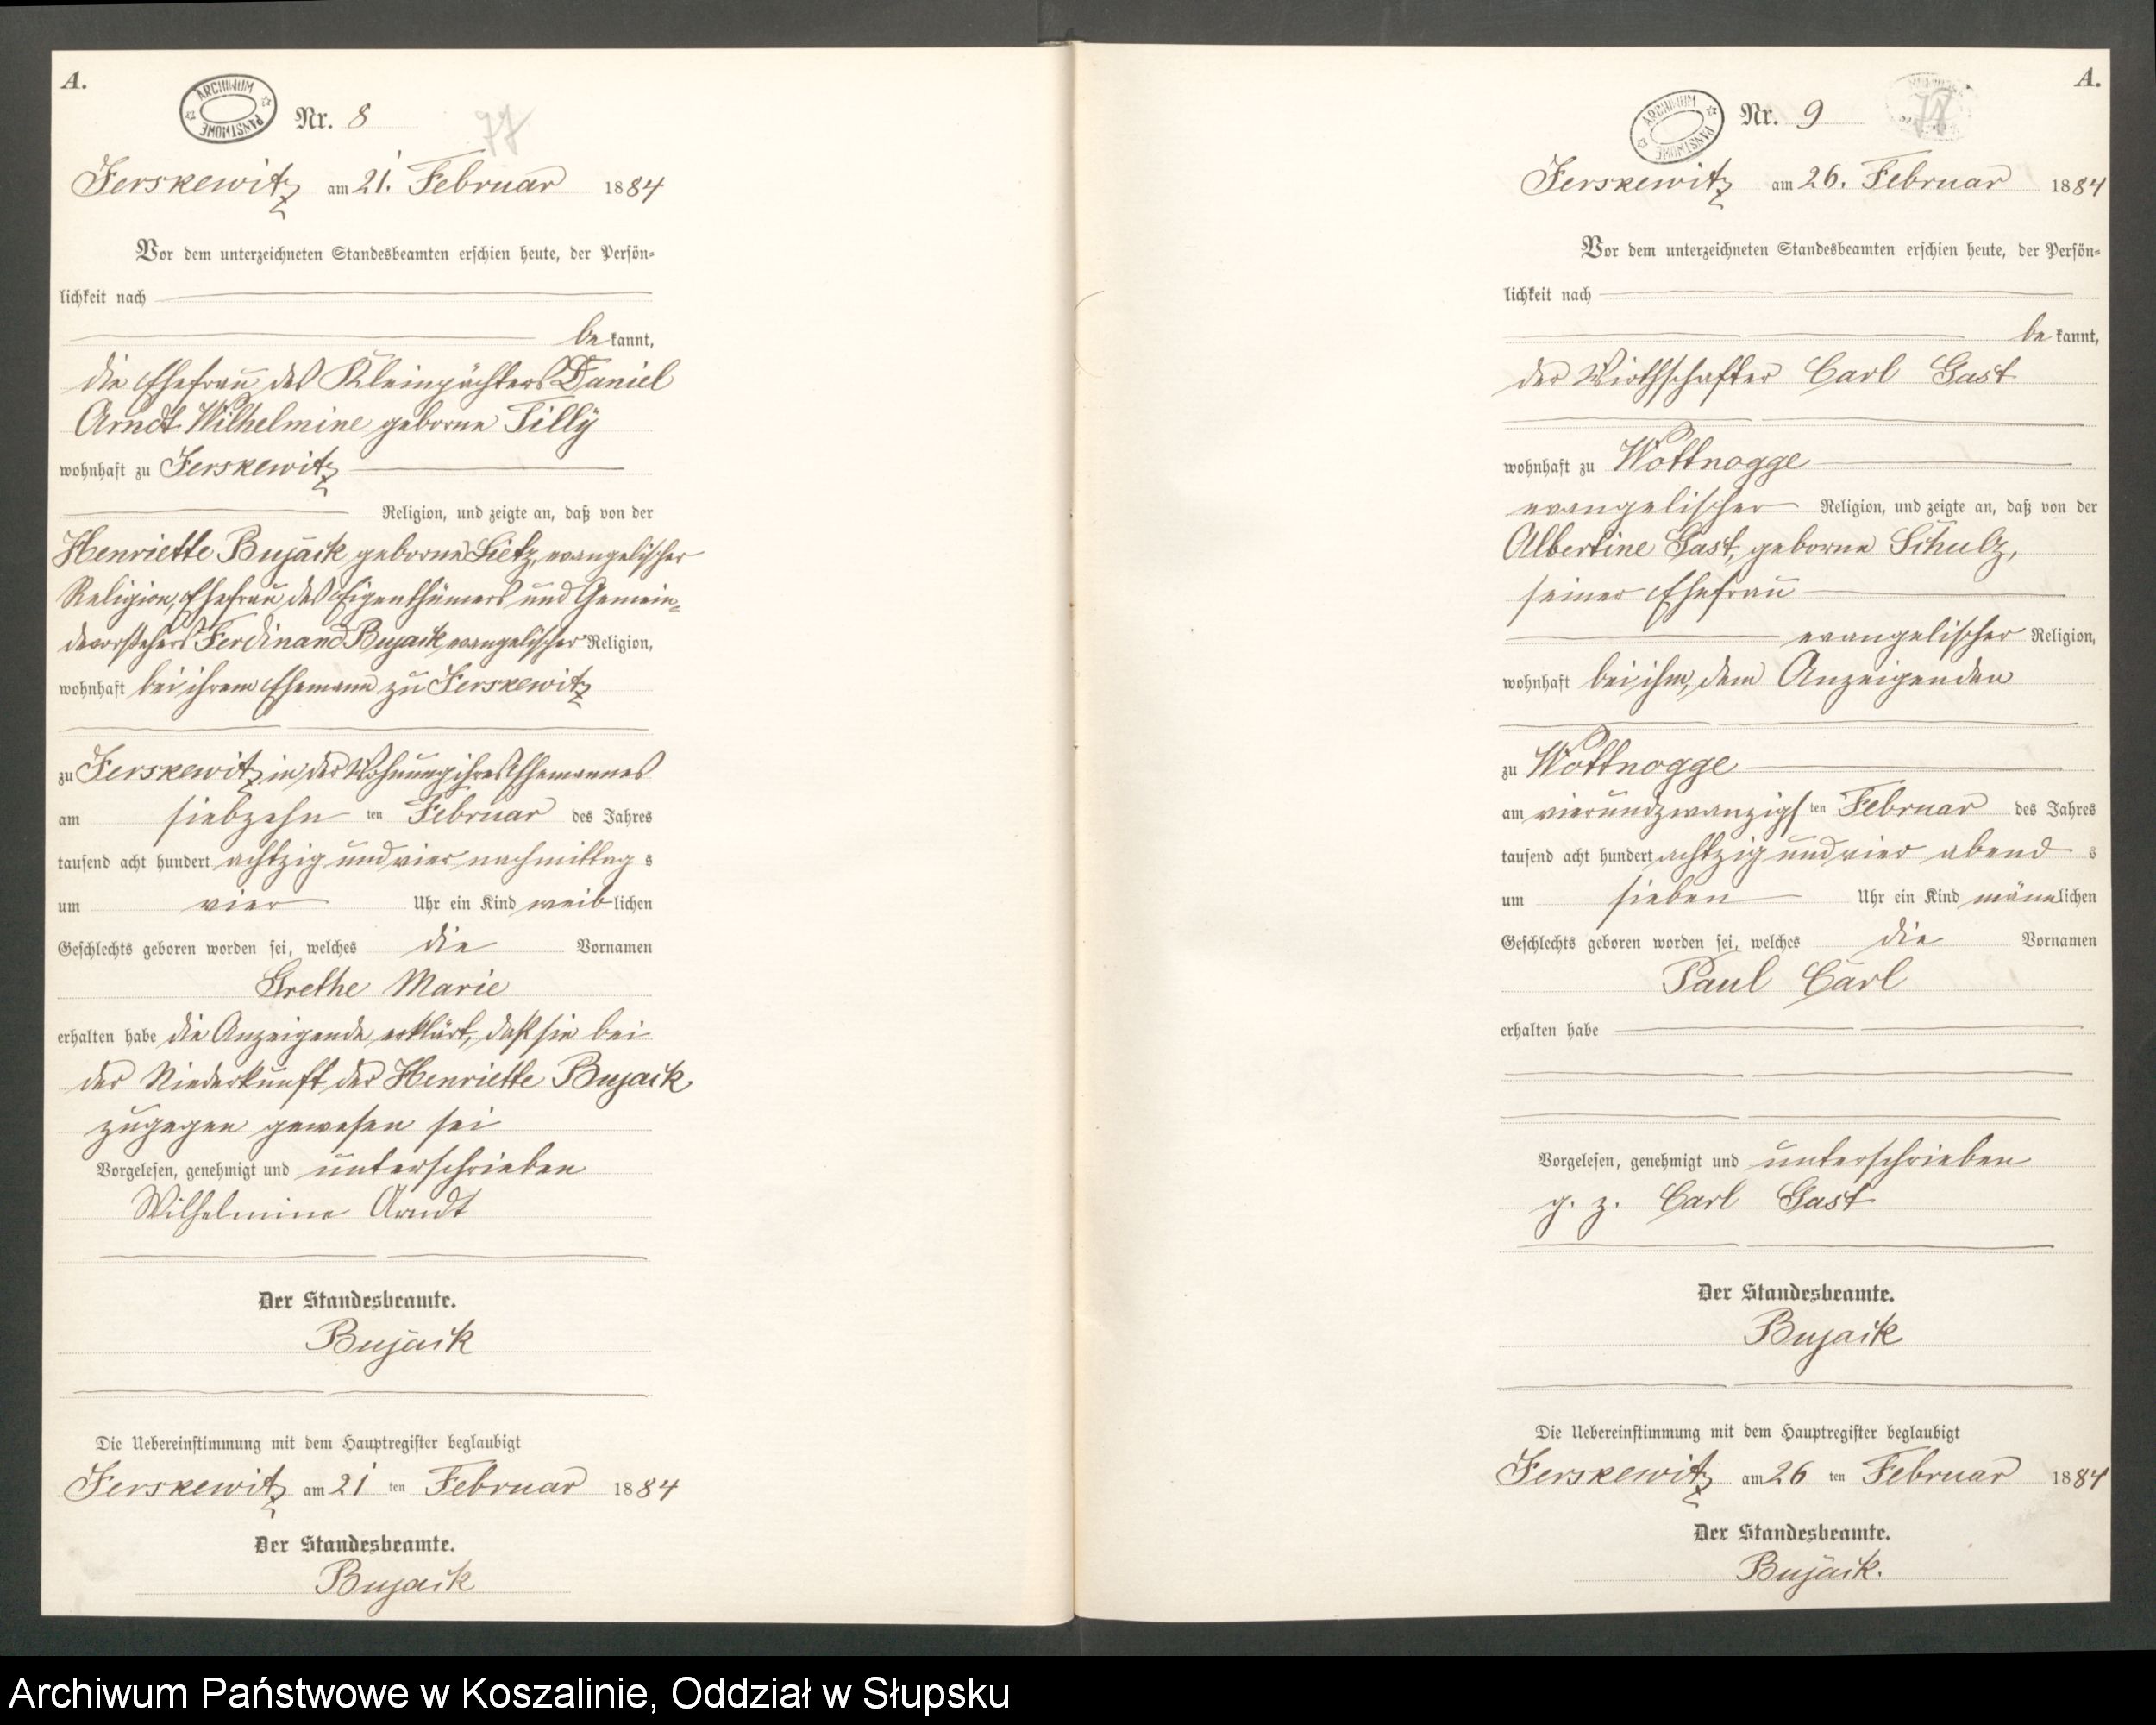 A.
ARCHIWUM PAŃSTWOWE
Nr. 8
77
Jerskewitz am 21. Februar 1884
Vor dem unterzeichneten Standesbeamten erschien heute, der Persön-
lichkeit nach
bekannt,
die Ehefrau des Kleinpächters Daniel
Arndt Wilhelmine geborne Tilly
wohnhaft zu Jerskewitz
Religion, und zeigte an, daß von der
Henriette Bujack geborne Lietz, evangelischer
Religion, Ehefrau des Eigenthümers und Gemein-
devorstehers Ferdinand Bujack, evangelischer Religion,
wohnhaft bei ihrem Ehemann zu Jerskewitz
zu Jerskewitz in der Wohnung ihres Ehemannes
am siebzehn ten Februar des Jahres
tausend acht hundert achtzig und vier nachmittag s
um vier Uhr ein Kind weiblichen
Geschlechts geboren worden sei, welches die Vornamen
Grethe Marie
erhalten habe die Anzeigende erklärt, daß sie bei
der Niederkunft der Henriette Bujack
zugegen gewesen sei
Vorgelesen, genehmigt und unterschrieben
Wilhelmine Arndt
Der Standesbeamte.
Bujack
Die Uebereinstimmung mit dem Hauptregister beglaubigt
Jerskewitz am 21 ten Februar 1884
Der Standesbeamte.
Bujack
A.
ARCHIWUM PAŃSTWOWE
Nr. 9
Jerskewitz am 26. Februar 1884
Vor dem unterzeichneten Standesbeamten erschien heute, der Persön-
lichkeit nach
bekannt,
der Wirthschafter Carl Gast
wohnhaft zu Wottnogge
evangelischer Religion, und zeigte an, daß von der
Albertine Gast, geborne Schulz,
seiner Ehefrau
evangelischer Religion,
wohnhaft bei ihm, dem Anzeigenden
zu Wottnogge
am vierundzwanzigs ten Februar des Jahres
tausend acht hundert achtzig und vier abend s
um sieben Uhr ein Kind männlichen
Geschlechts geboren worden sei, welches die Vornamen
Paul Carl
erhalten habe
Vorgelesen, genehmigt und unterschrieben
g. z. Carl Gast
Der Standesbeamte.
Bujack
Die Uebereinstimmung mit dem Hauptregister beglaubigt
Jerskewitz am 26 ten Februar 1884
Der Standesbeamte.
Bujack.
Archiwum Państwowe w Koszalinie, Oddział w Słupsku